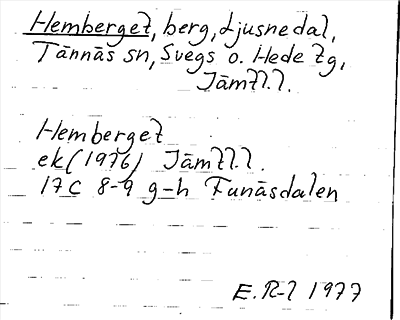 Hemberget, berg, Ljusnedal,
Tännäs sn, Svegs o. Hede tg,
Jämtl.l.
Hemberget
ek (1976) Jämtl.l.
17C 8-9 g-h Funäsdalen
E.R-l 1977